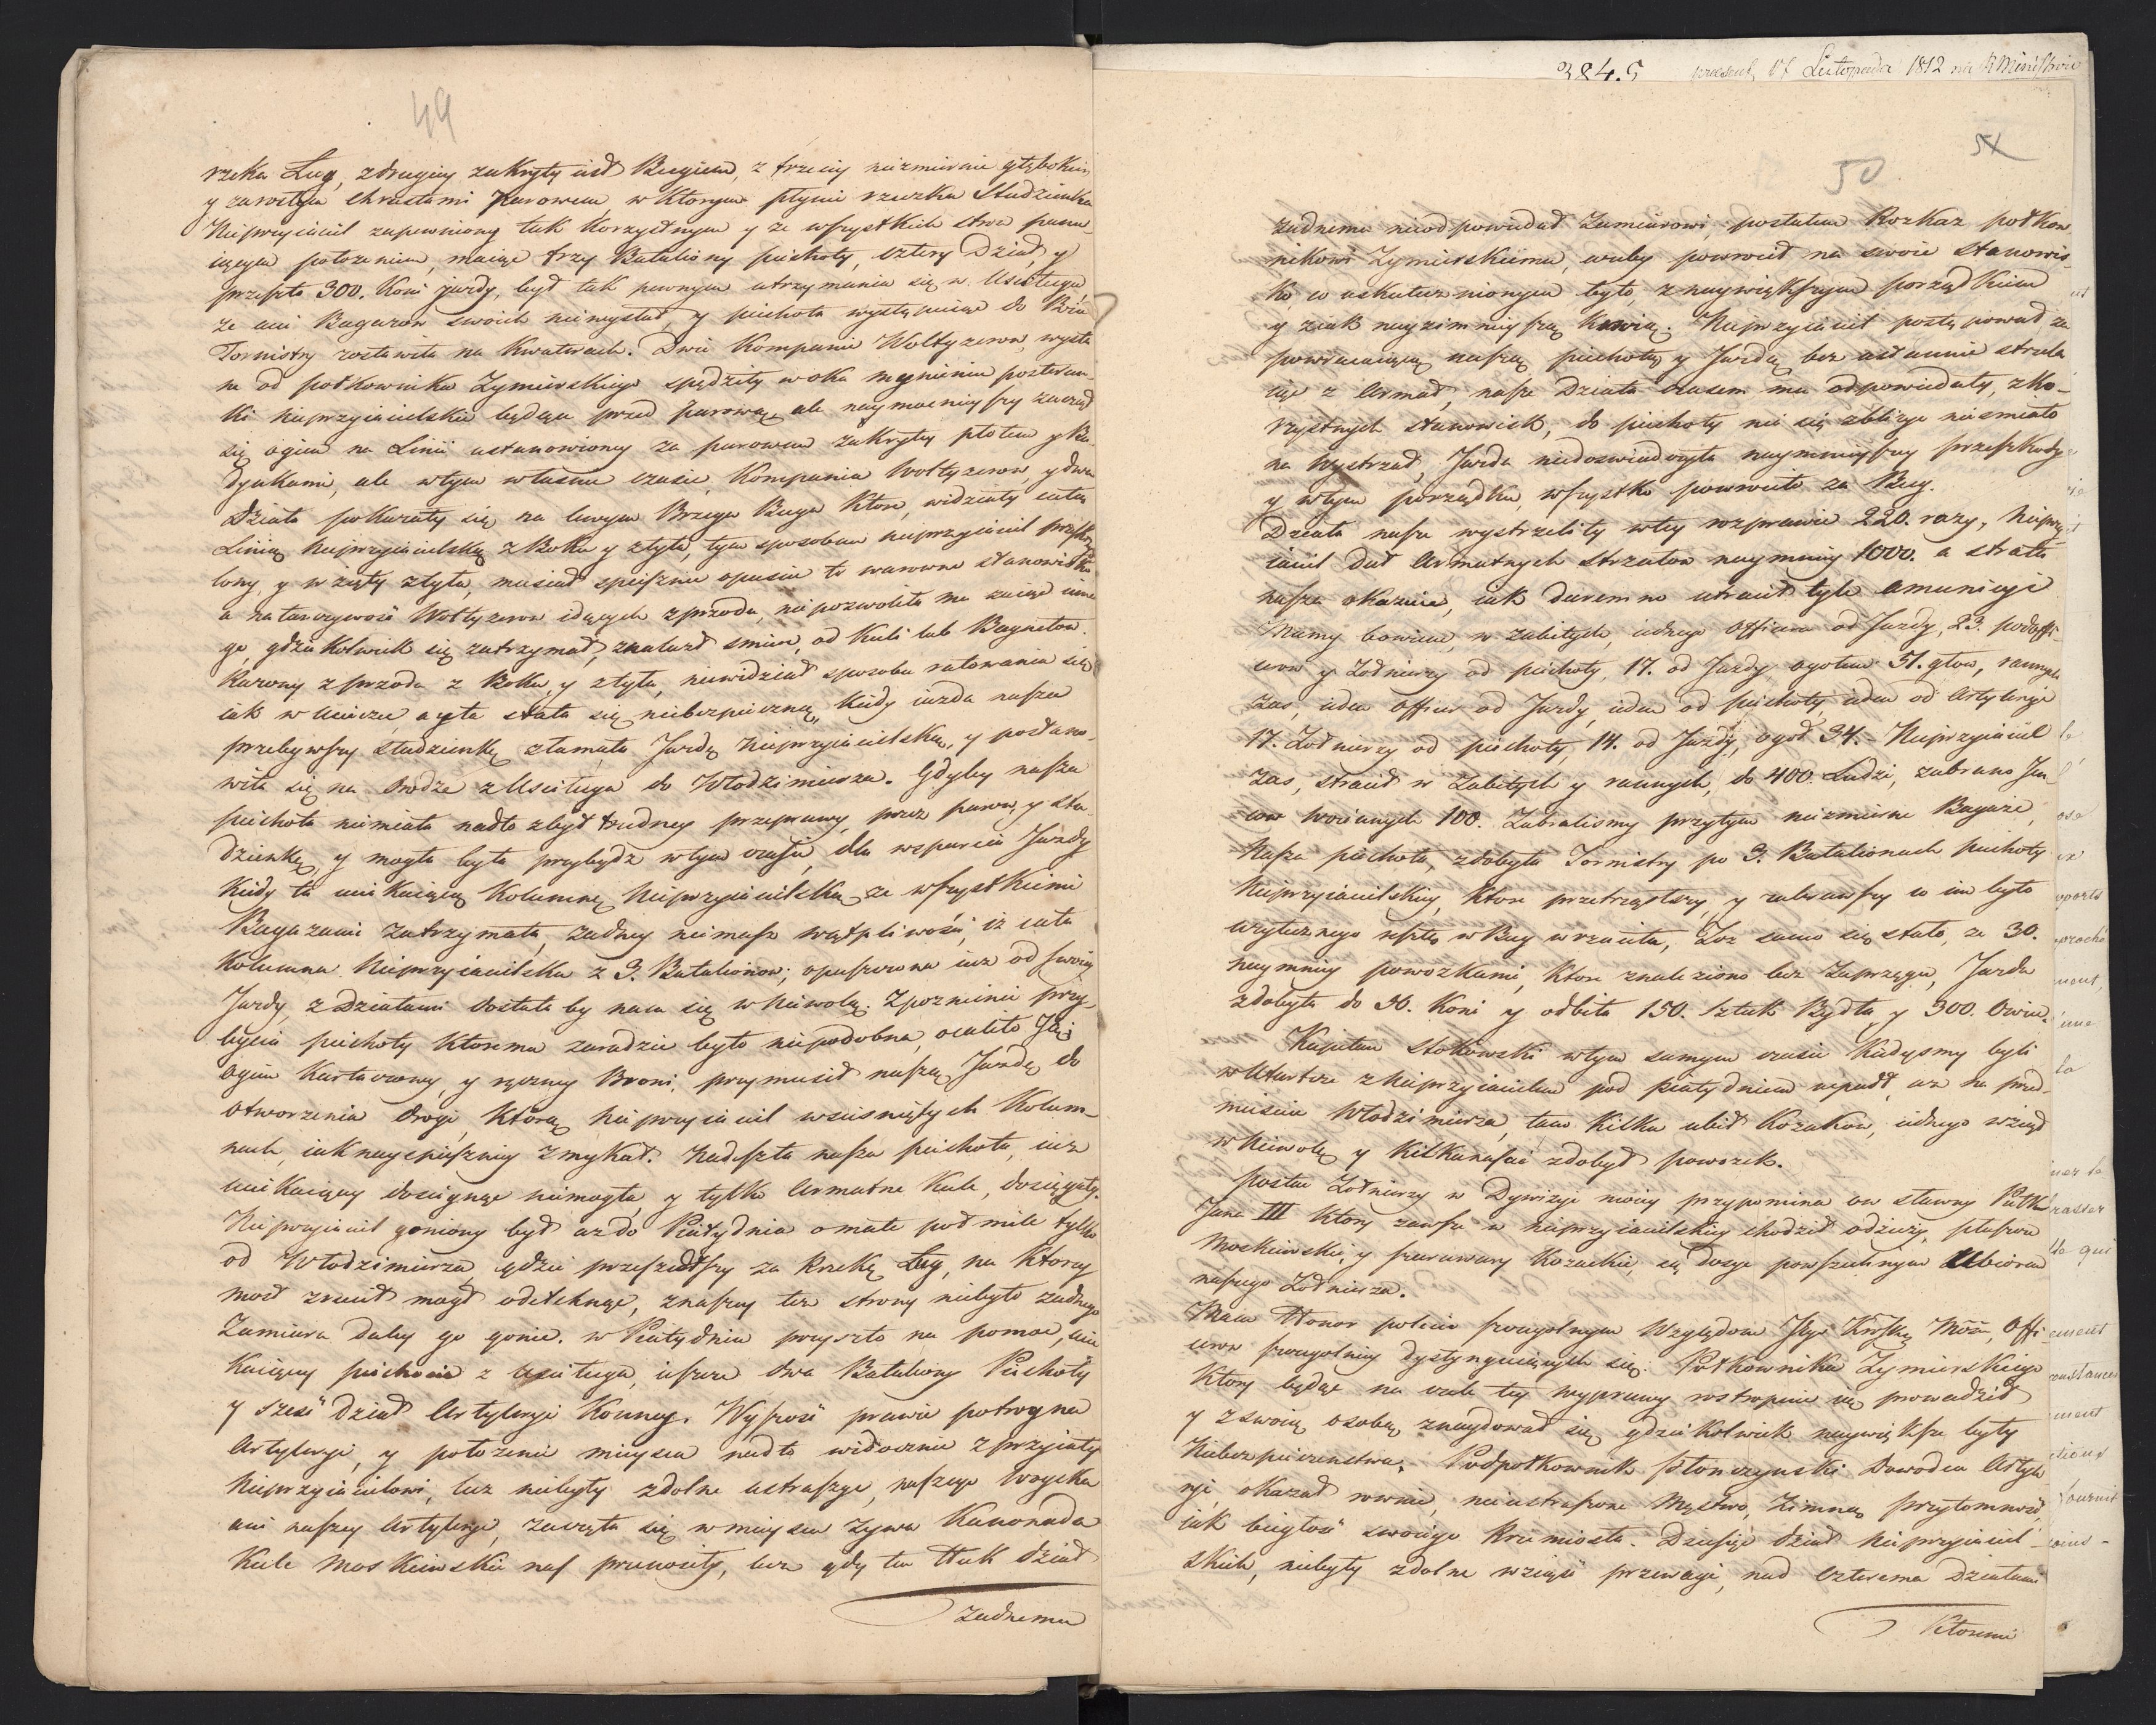 49
rzeka Ług, zdrugiey zakryty iest Bugiem, z trzeciy niezmiernie głębokim
y zarosłym chrustami Parowem wktorym płynie rzeczka Studzianka
Nieprzyiaciel zapewniony tak korzystnym y ze wszystkich stron panu-
iącym położeniem, maiąc trzy Bataliony piechoty, cztery Dział y
przeszło 300. Koni jazdy, był tak pewnym utrzymania się w Uściługu
że ani Bagażow swoich niewysłał, y piechota występuiąc do
Tornistry zostawiła na Kwaterach. Dwie Kompanie Woltyzerow, wysła
ne od połkownika Zymirskiego spędziły w oka mgnieniu posterun-
ki nieprzyiacielskie będące przed parowem, ale naymocnieyszy zaczął
się ogień na Linii ustanowioney za parowem zakrytey płotem y Bu-
dynkami, ale wtym własnie czasie, Kompania Woltyzerow, y dwa
Działa pokazały się na lewym Brzegu Bugu ktore, widziały całą
Linią Nieprzyiacielską zBoku y ztyłu, tym sposobem nieprzyiaciel
y wzięty ztyłu, musiał spiesznie opuscic to warowne stanowisko
a natarczywosc Woltyzerow idących zprzodu, niepozwoliła mu zaiąc inne
go, gdziekolwiek się zatrzymał, znalazł smierc, od Kuli lub Bagnetow.
Razony zprzodu z Boku, y ztyłu, niewidział sposobu ratowania się
iak w ucieczce, a y ta stała się niebezpieczną, kiedy iazda nasza
przebywszy Studziankę złamała Jazdę Nieprzyiacielską, y postano-
wiła się na drodze z Uściługa do Włodzimierza. Gdyby nasza
piechota niemiała nadto zbyt trudney przeprawy, przez parow, y Stu-
dziankę, y mogła była przybydz wtym czasie, dla wsparcia Jazdy
kiedy ta uciekaiącą Kolumnę Nieprzyiacielską ze wszystkiemi
Bagazami zatrzymała, zadney niemasz wątpliwości, iz cała
Kolumna Nieprzyiacielska z 3. Batalionow, opuszczona iuz od swoiey
Jazdy, z Działami dostała by nam się w Niewolą. Zpoznienie przy-
bycia piechoty ktoremu zaradzic było niepodobna, ocaliło Jey
ogien Kartaczowy, y ręczney Broni, przymusił naszą Jazdę do
otworzenia drogi, ktorą nieprzyiaciel wscisniętych Kolum-
nach, iak nayspieszniey zmykał. Nadeszła nasza piechota, iuz
uciekaiący doscignąc niemogła, y tylko Armatne Kule, dosięgały.
Nieprzyiaciel goniony był az do Piatydnia omale pół mile tylko
od Włodzimierza, gdzie przeszedłszy za Rzekę Ług, na ktorey
most zrzucił mógł odetchnąc, znaszey tez strony niebyło zadnego
Zamiaru daley go gonic. w Piatydniu przyszło na pomoc, ucie
kaiącey piechocie z Uściługa, ieszcze dwa Bataliony Piechoty
y sześć dział Artyleryi Konney. Wyszosc prawie potroyna
Artyleryi, y położenie mieysca nadto widocznie zprzyiały
Nieprzyiacielowi, lecz niebyły zdolne ustraszyc, naszego Woyska
ani naszey Artyleryi, zaczęła się wmieysca zywa Kanonada
Kule Moskiewskie nas przenosiły, lecz gdy ten Huk dział
Zadnemu
384.5 17 Listopada 1812
50
51
zadnemu nieodpowiadał Zamiarowi, posłałem Rozkaz połkow
nikowi Zymirskiemu, azeby powrocił na swoie Stanowis
ko, co uskutecznionym było, z naywiększym porządkiem
y ziak nayzimnieyszą krwią. Nieprzyiaciel postępował za
powracaiącą naszą piechotą y Jazdą bez ustannie strzela
iąc z Armat, nasze Działa czasem mu odpowiadały, zko-
rzystnych stanowisk, do piechoty nie się zblizyc niesmiało
na wystrzał, Jazda niedoswiadczyła naymnieyszey przeszkody
y wtym porządku, wszystko powrociło za Bug.
Działa nasze wystrzeliły wtey rozprawie 220. razy, Nieprzy
iaciel dał Armatnych strzałow naymniey 1000. a strata
nasza okazuie, iak daremno utracił tyle amunicyi
Mamy bowiem, w zabitych, iednego Officera od Jazdy, 23. podoffi-
cerow y Zołnierzy od piechoty, 17. od Jazdy ogołem 51. głow, rannych
Zas, ieden officer od Jazdy, ieden od piechoty, ieden od Artyleryi
17. Zołnierzy od piechoty, 14. od Jazdy, ogoł 34. Nieprzyiaciel
Zas, stracił w Zabitych y rannych, do 400. Ludzi, zabrano Jen
cow woiennych 100. Zabralismy przytym niezmierne Bagaze,
Nasza piechota, zdobyła Tornistry po 3. Batalionach piechoty
Nieprzyiacielskiey, ktore przetrząsłszy, y zabrawszy co im było
uzytecznego resztę w Bug wrzuciła, Toz samo się stało, ze 30.
naymniey powozkami, ktore znaleziono bez Zaprzęgu, Jazda
zdobyła do 50. Koni y odbiła 150. sztuk Bydła, y 300. Owiec.
Kapitan Stokowski wtym samym czasie kiedysmy byli
w Utarczce z Nieprzyiacielem pod Piatydniem wpadł, az na przed-
miescie Włodzimierza, tam kilku ubił Kozakow, iednego wziął
w Niewolą y kilkanascie zdobył powozek.
Postac Zołnierzy w Dywizyi moiey przypomina ow sławny Pułk
Jana III ktory zawsze w nieprzyiacielskiey chodził odziezy, płaszcze
Moskiewskie, y szarawary Kozackie, są dosyc powszechnym Ubiorem
naszego Zołnierza.
Mam Honor polecic szczegolnym Względom Jego Krolskę Mōści, Offi
cerow szczegolniey dystyngwuiących się. Połkownika Zymirskiego
ktory będąc na czele tey wyprawy roztropnie ią prowadził
y zswoią osobą znaydował się gdziekolwiek naywiększe były
Niebezpieczenstwa, Podpołkownik Płonczynski Dowodca Artyle
ryi, okazał rownie, nieustraszone Męstwo, Zimną przytomność,
iak biegłość swoiego Rzemiosła. Dziesięc dział Nieprzyiaciel-
skich, niebyły zdolne wziąść przewagi, nad czterema Działami
Ktoremi